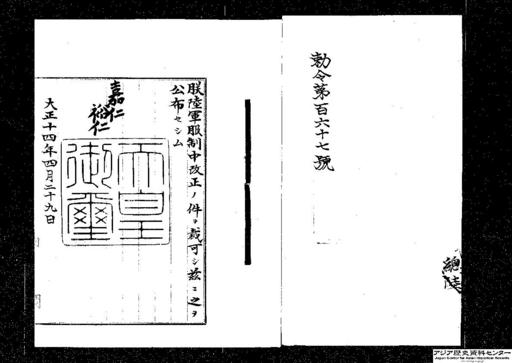 勅令第百六十七號
總陸
朕陸軍服制中改正ノ件ヲ裁可シ茲ニ之ヲ
公布セシム
嘉仁
裕仁
天皇
御璽
大正十四年四月二十九日
アジア歴史資料センター
Japan Center for Asian Historical Records